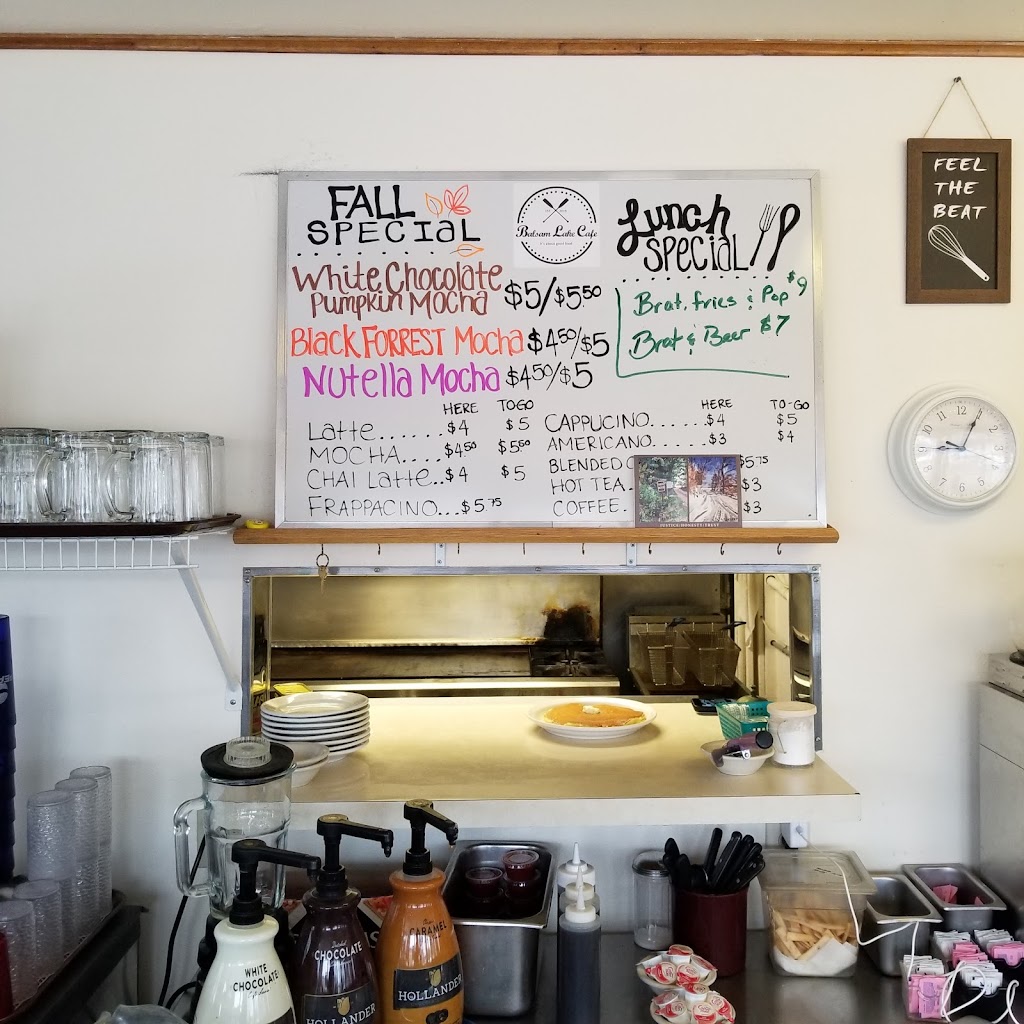 FALL
SPECIAL
White Chocolate
Pumpkin Mocha $5/$5.50
Black FORREST Mocha $4.50/$5
Nutella Mocha $4.50/$5
Balsam Lake Cafe
Lunch
Special
Brat, fries & Pop $9
Brat & Beer $7
HERE TOGO
Latte......$4 $5
MOCHA....$4.50 $5.50
CHAI Latte..$4 $5
FRAPPACINO...$5.75
HERE TO-GO
CAPPUCINO......$4 $5
AMERICANO......$3 $4
BLENDED $5.75
HOT TEA. $3
COFFEE. $3
JUSTICE/HONESTY/TRUST
FEEL
THE
BEAT
12
WHITE
CHOCOLATE
CHOCOLATE
HOLLANDER
CARAMEL
HOLLANDER